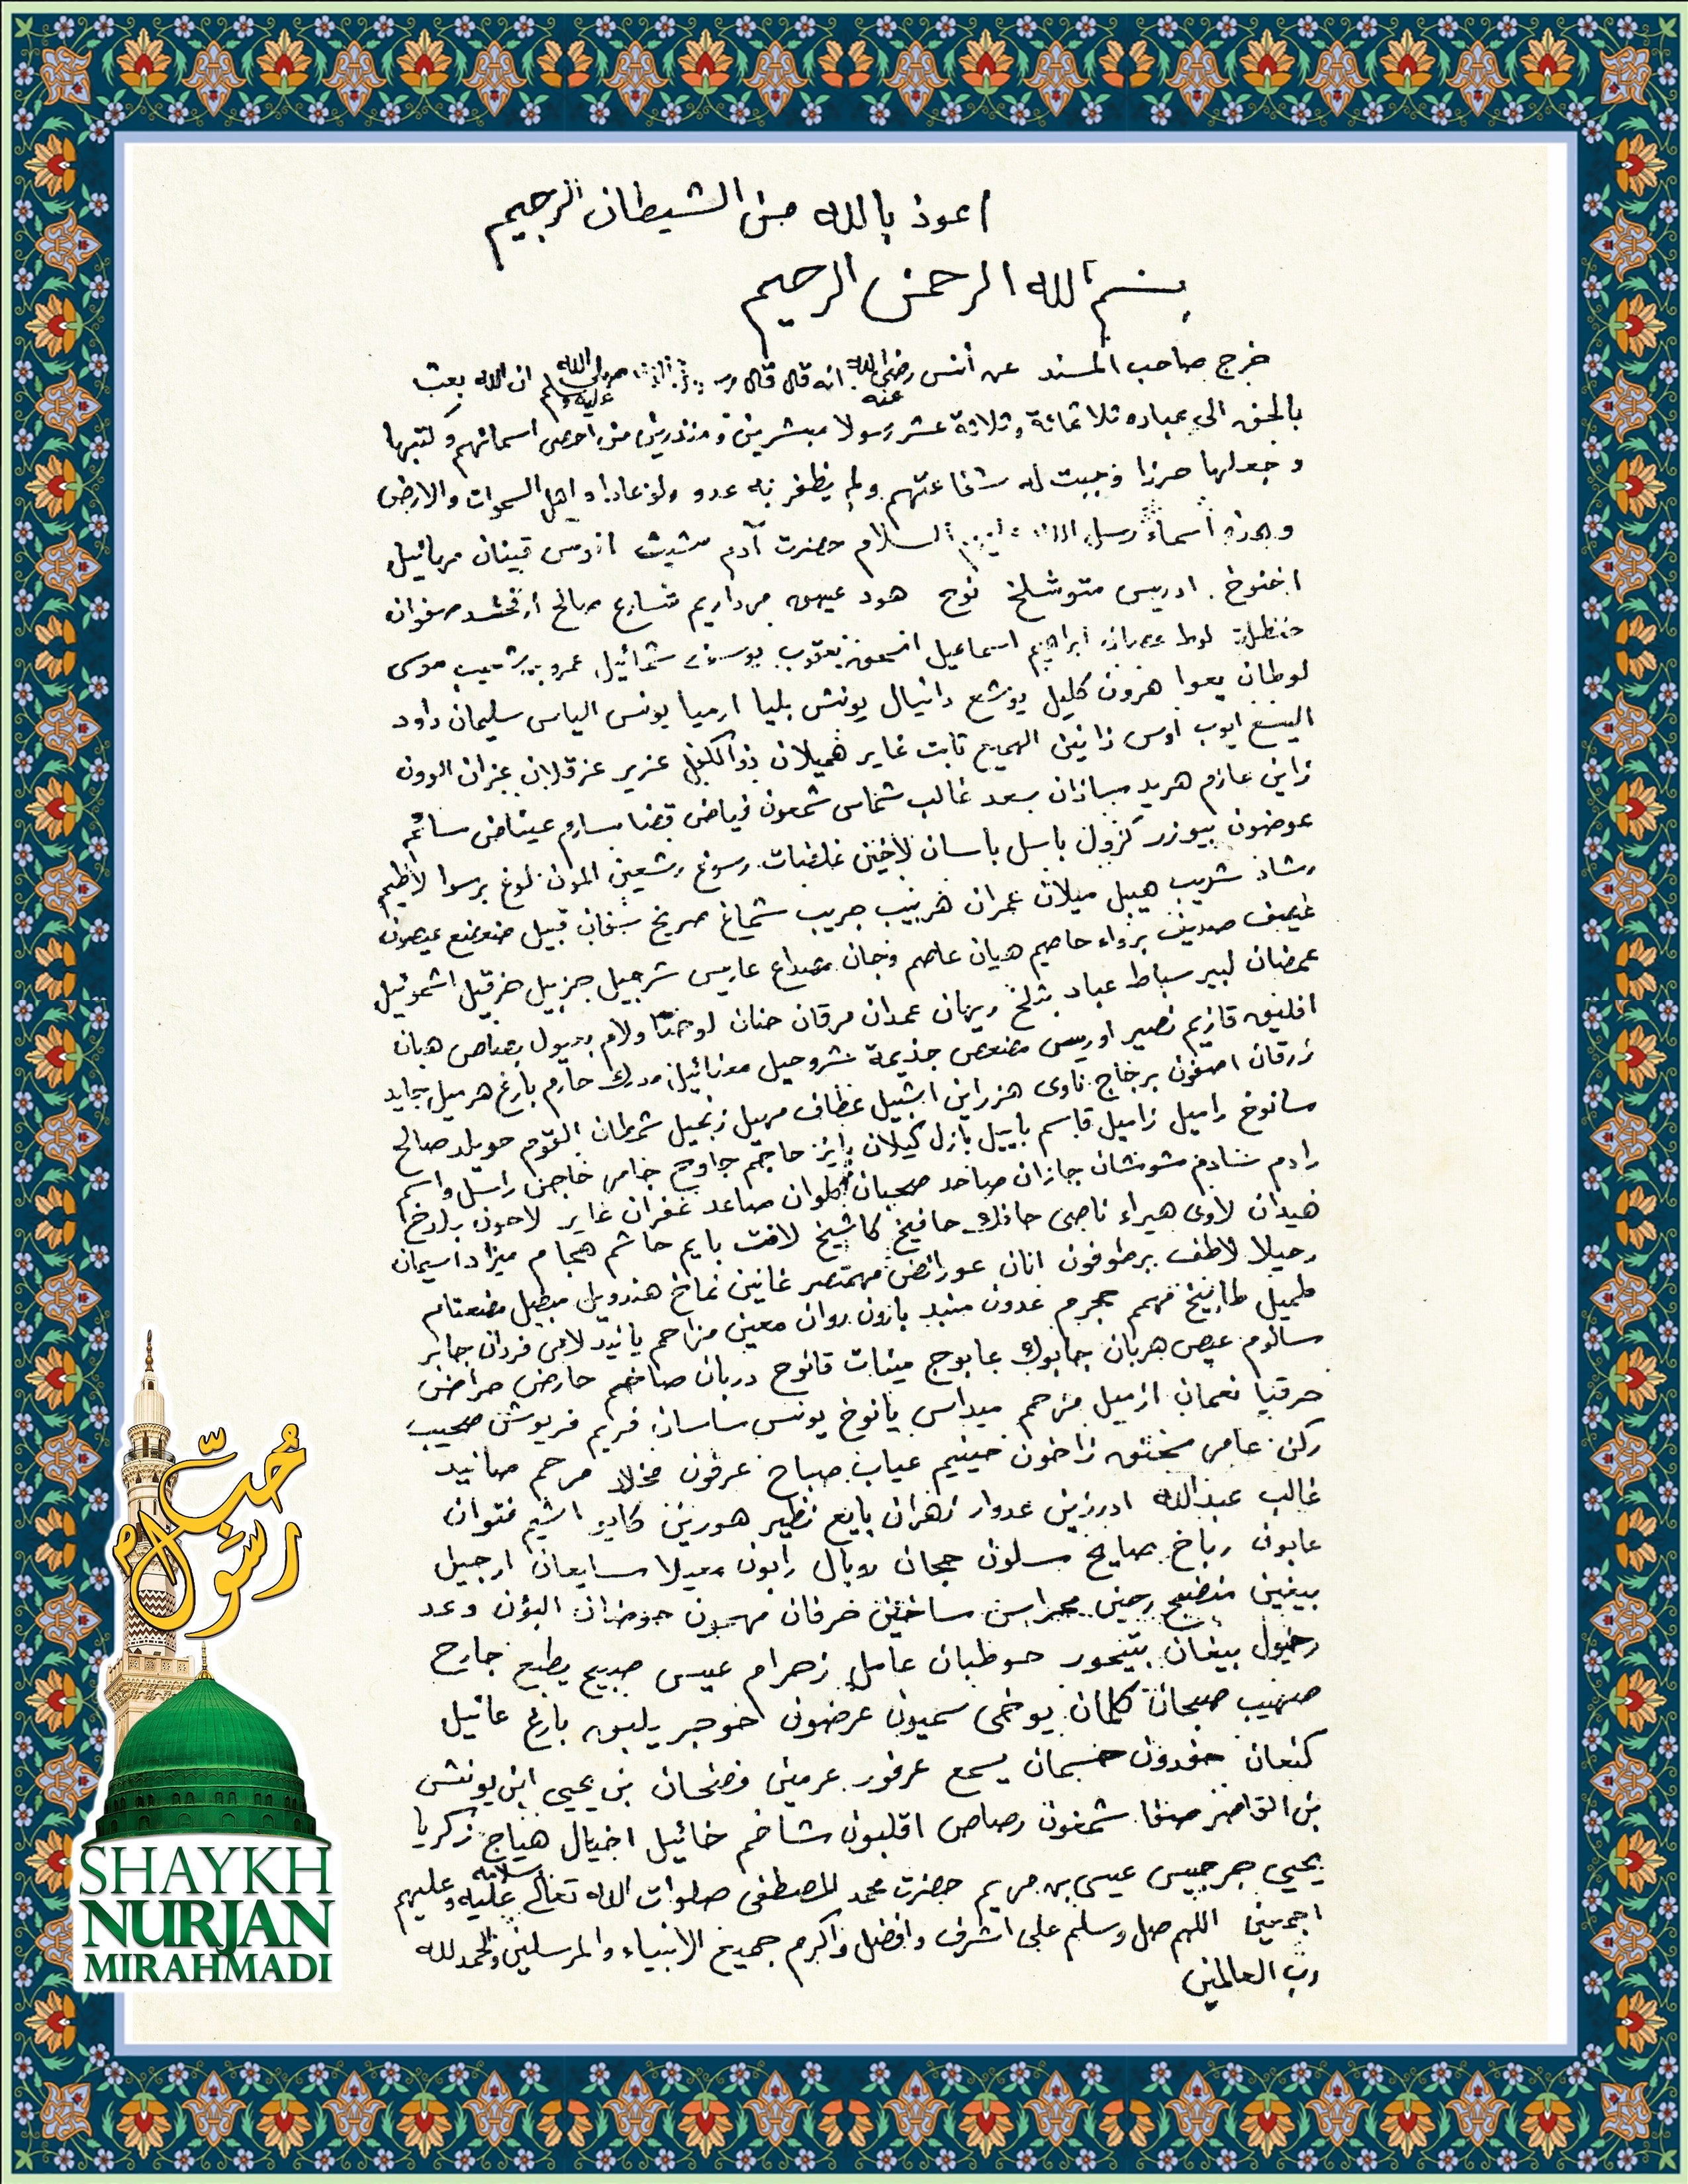 اعوذ بالله من الشيطان الرجيم
بسم الله الرحمن الرحيم
خرج صاحب المسند عن أنس رضي الله عنه انه قال قال صلى الله عليه وسلم ان الله بعث
بالحق الى عباده ثلاثمائة وثلاثة عشر رسولا مبشرين ومنذرين من احصى اسمائهم وكتبها
وجعلها حرزا وجبت له شفاعتهم ولم يظفر به عدو ولو عاداه اهل السموات والارض
وهذه اسماء رسل السلام حضرت آدم شيث انوس قينان مهائيل
اخنوخ ادريس متوشلخ نوح هود عبهه مرداريم شارع صالح أرفخشد صفوان
حنظلة لوط ابراهيم اسماعيل اسحق يعقوب يوسف شمائيل شعيب موسى
لوطان يعوا هرون كليل يوشع دانيال يونش بليا ارميا يونس الياس سليمان داود
اليسع ايوب اوس ذانين الهميع ثابت غابر هميلان ذوالكفل عزير عزقلان عزان الوون
زاين عازم هربد ساذان سعد غالب شماس شمعون فياض قضا سارم عيناض سائم
عوضون بيوزر كزول باسل باسان لاخين غلضات رسوغ رشعين المون لوغ برسوا لاظيم
رشاد شريب هيبل ميلان عمران هربيب جريت شماغ صريخ سفان قبيل ضعضع عيصون
عيصف صديف برواء حاصيم هيان عاصم وجان مصداع عاريس شرحبيل حزبيل حزقيل اشموئيل
عمضان لبير سباط عباد بثلخ ريهان عمدان مرقان حنان لوحنا ولام بعيول بصاص هبان
افليق قازيم نصير اوريس مضعص جذيمة شروحيل معزائيل مدرك حارم بارغ هرميل جابد
زرقان اصفون برجاج ناوى هزراين اشبيل عطاف مهيل زنجيل شمطان القوم حوبلد صالح
سانوخ راميل زاميل قاسم باييل بازل كيلان باتر حاجم جاوح جامر حاجن راسل واسم
رادم سادم شوشان جازان صاحد صحبان كلوان صاعد غفران غاير لاحون بلدخ
هيدان لاوى هيراء ناصى حافك حافيخ كاشيخ لافث بايم حاشم هجام ميزاد اسيمان
رحيلا لاطف برطوفون ابان عورائض مهمتصر عانين نماخ هندويل مبصل مضعتام
طميل طابيخ مهمم حجرم عدون منبد بارون روان معين مزاحم يانيد لامى فردان جابر
سالوم عيص هربان جابوك عابوج مينات قانوح دربان صاخم حارض حراض
حرقيا نعمان ازميل مزحم ميداس يانوخ يونس ساسان فريم فريوش صحيب
ركن عامر سحنق زاخون حينيم عياب صباح عرفون مخلاد مرحم صانيد
غالب عبدالله ادرزين عدوان زهران بايع نظير هورين كايو اشيم فتوان
عابون رباخ صابح سلون حجان روبال رابون معيلا سابعان ارجيل
بيغين متضح رحين محراس ساخين حرفان مهمون حوضان البؤن وعد
رخيول بيغان بتيحور حوظبان عامل زهرام عيس صبيح يطبع جارح
صهيب صبحان كلمان يوخى سميون عرضون حوحر يلبق بارع عائيل
كنعان حفدون حسمان يسمع عرفور عرمين فضحان بن يحيى ابن يونش
صفا شمعون رصاص اقلبون شاخم خائيل اخيال هياج زكريا
يحيى جرجيس عيسى بن مريم حضرت محمد المصطفى صلوات الله تعالى وسلامه عليه وعليهم
اجمعين اللهم صل وسلم على اشرف وافضل واكرم جميع الانبياء والمرسلين والحمد لله
رب العالمين
حُبّ رسول
SHAYKH
NURJAN
MIRAHMADI